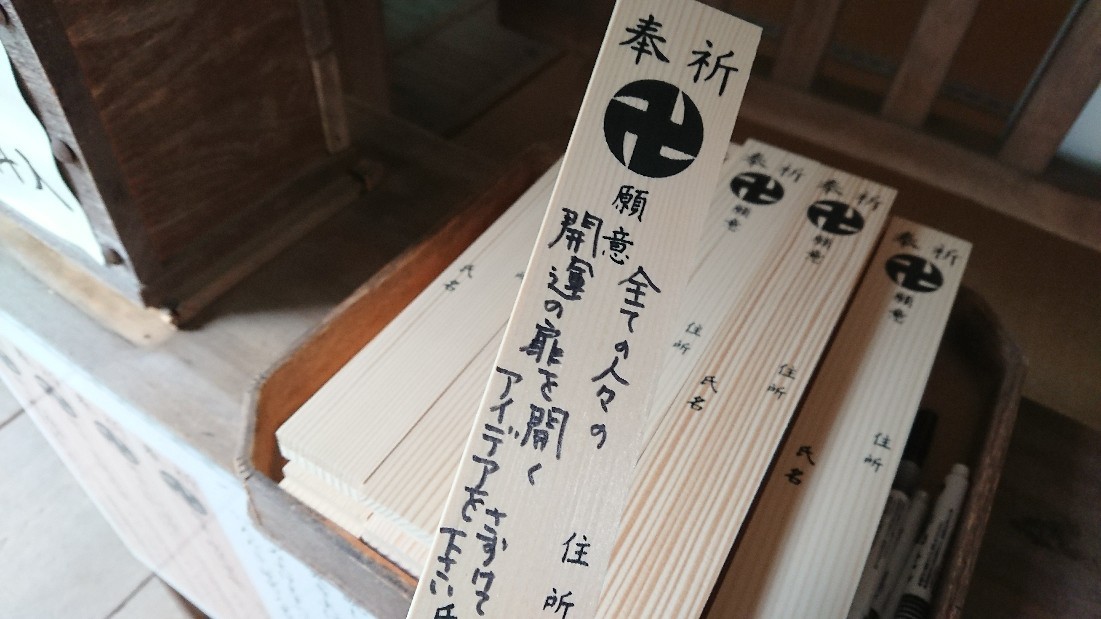 奉祈
卍
願意
全ての人々の
開運の扉を開く
アイデアを
さずけて
下さい
住所
氏
奉祈
卍
願意
住所
氏名
奉祈
卍
願意
住所
氏名
奉祈
卍
願意
住所
氏名